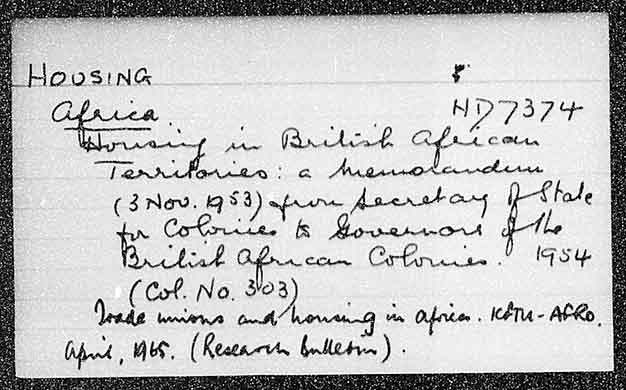 HOUSING 5
Africa. HD7374
Housing in British African
Territories: a memorandum
(3 Nov. 1953) from Secretary of State
for Colonies to Governors of the
British African Colonies. 1954
(Col. No. 303)
Trade unions and housing in Africa.
April, 1965. (Research bulletin).